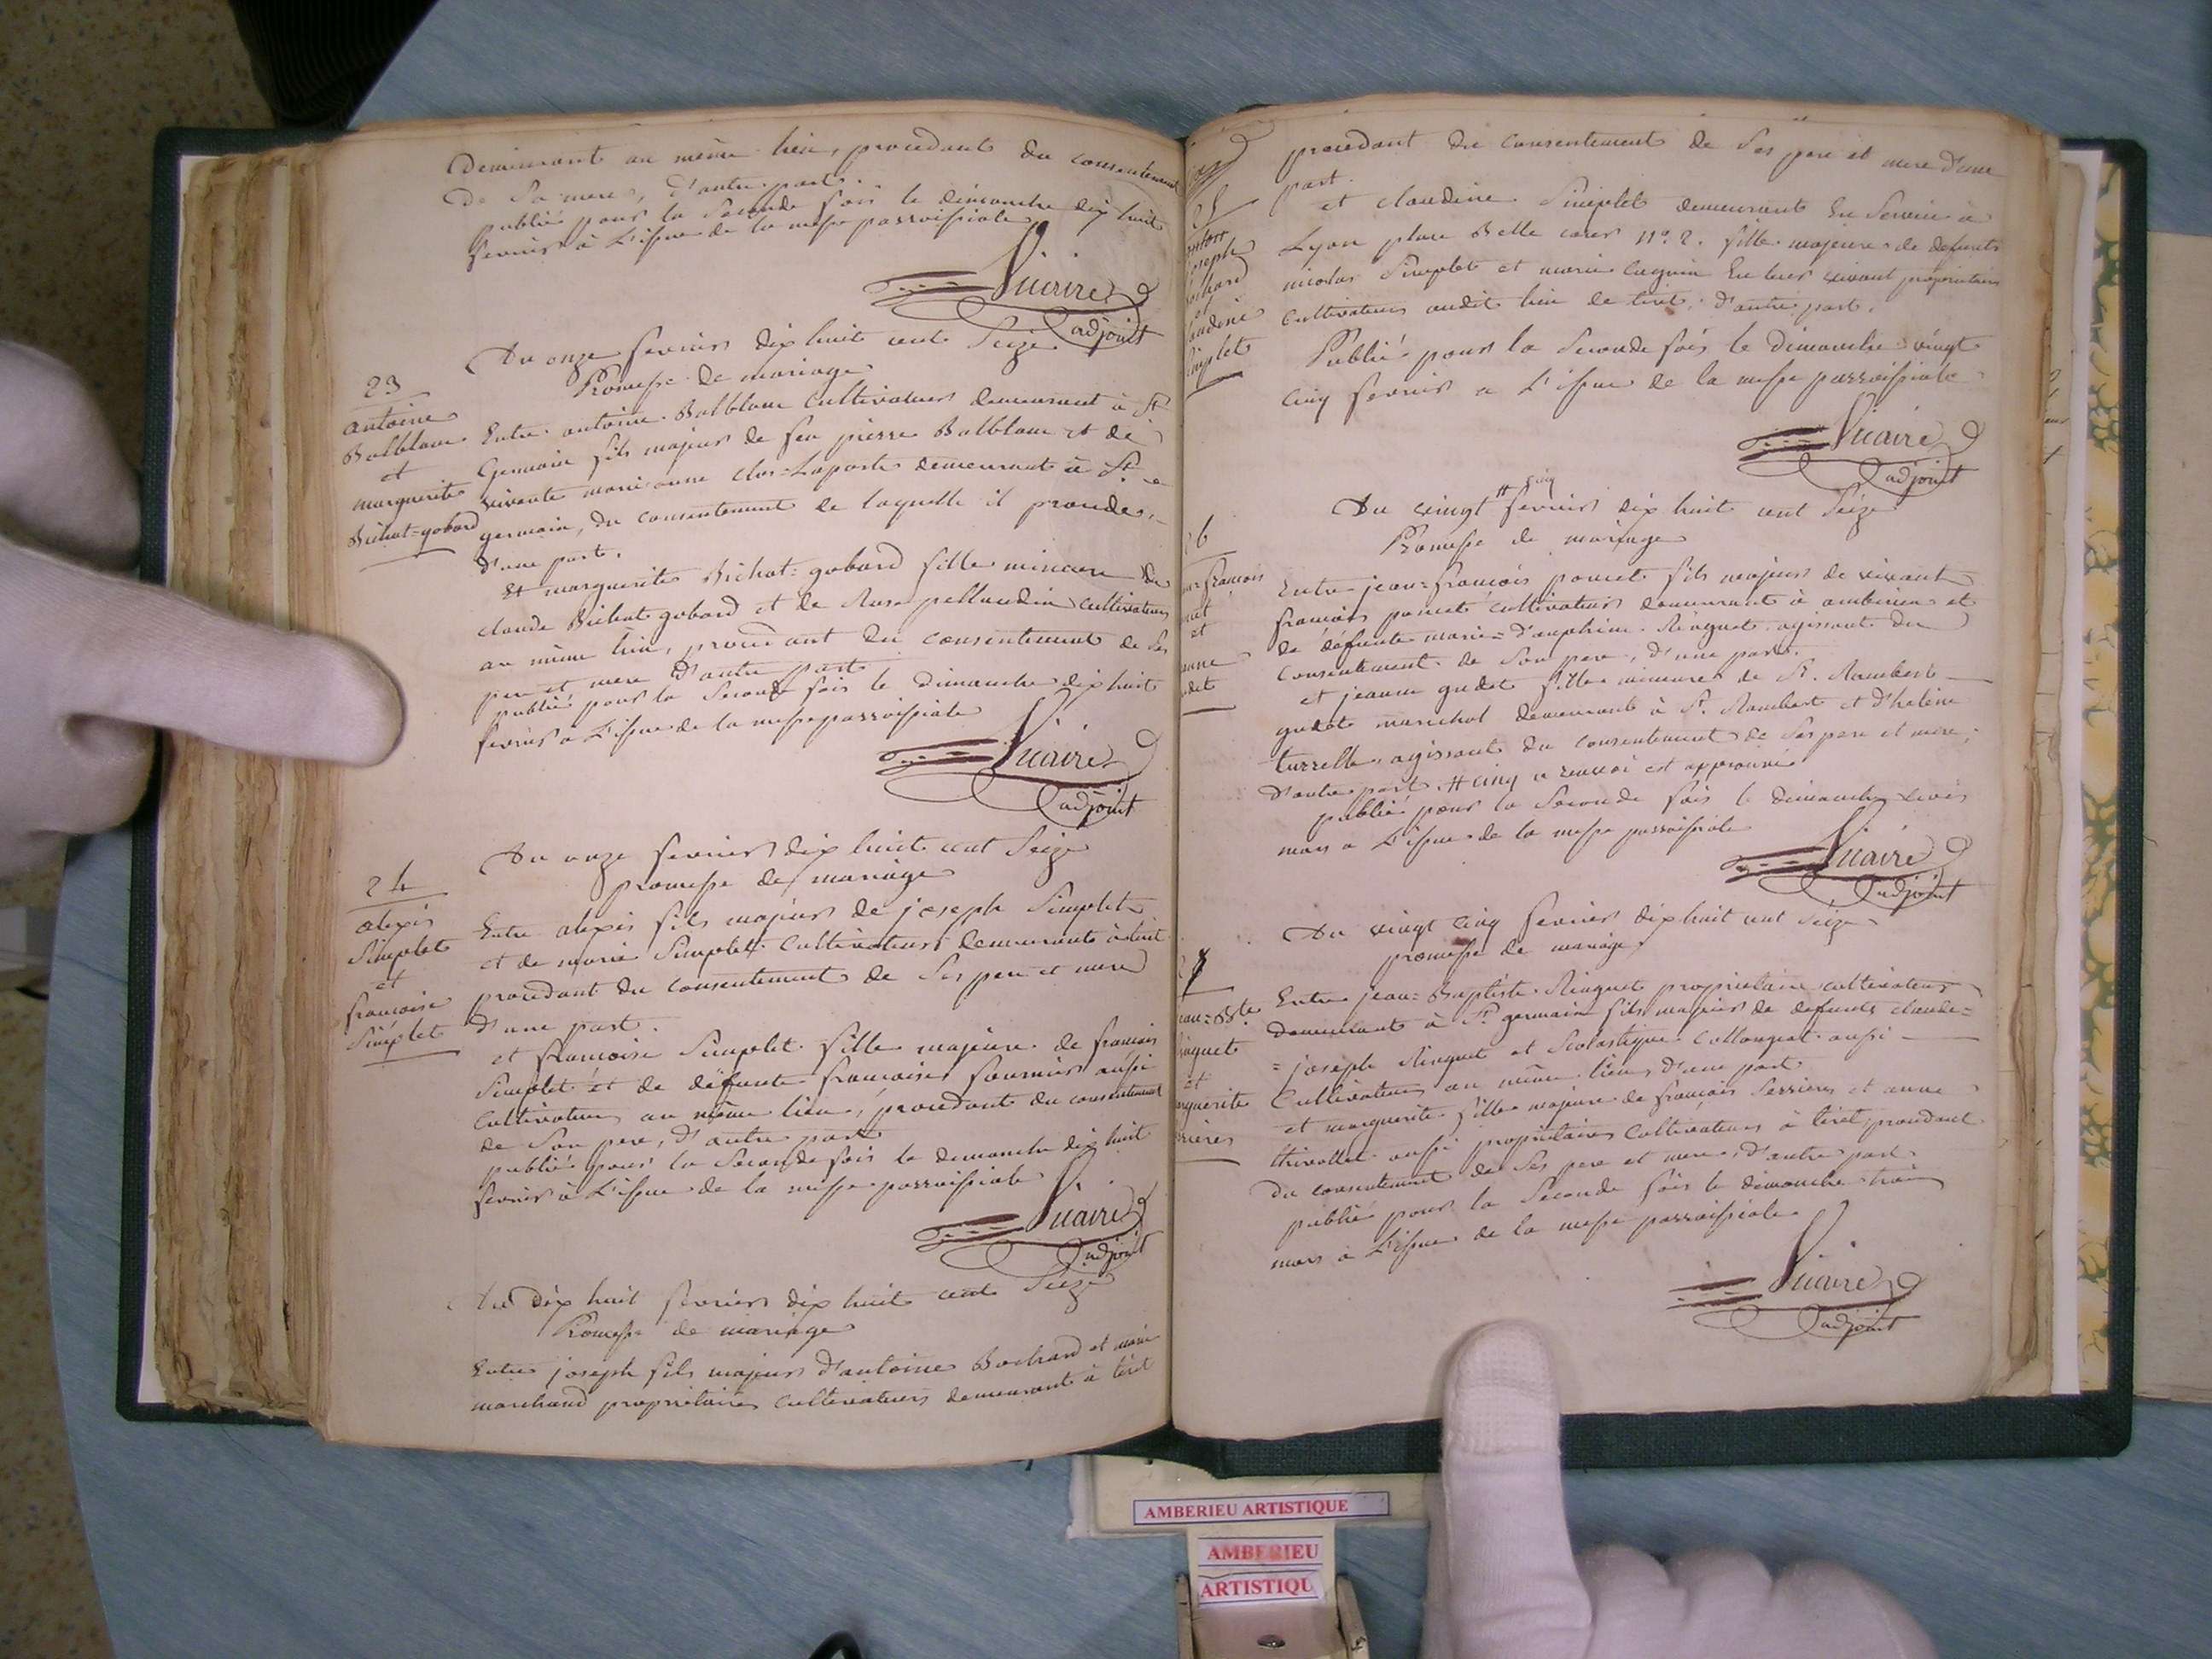 demeurant au même lieu, procedant du consentement
de sa mere, d'autre part.
publié pour la seconde fois le dimanche dix huit
fevrier à L'issue de la messe parroissiale
Vicaire
adjoint
23
antoine
Balblanc
et
marguerite
Bichat=gobard
Du onze fevrier dix huit cent Seize
Promesse de mariage
Entre antoine Balblanc Cultivateur demeurant à St
Germain fils majeur de feu pierre Balblanc et de
vivante marie anne clos=Laposte demeurant à St
germain, du consentement de laquelle il procede,
d'une part.
Et marguerite Bichat=gobard fille mineure de
claude Bichat gobard et de Rose pellaudin cultivateurs
au même lieu, procedant du consentement de ses
pere et mere d'autre part
publié pour la seconde fois le dimanche dix huit
fevrier a L'issue de la messe parroissiale
Vicaire
adjoint
24
alexis
Simplet
et
francoise
Simplet
Du onze fevrier dix huit cent Seize
promesse de mariage
Entre alexis fils majeur de joseph Simplet
et de marie Simplet Cultivateurs demeurants à tiret
procedant du consentement de ses pere et mere
d'une part.
et francoise Simplet fille majeure de francois
Simplet et de défunte francoise fournier aussi
Cultivateurs au même lieu, procedante du consentement
de son pere, d'autre part
publié pour la seconde fois le dimanche dix huit
fevrier à L'issue de la messe parroissiale
Vicaire
adjoint
Du dix huit fevrier dix huit cent Seize
Promesse de mariage
Entre joseph fils majeur d'antoine Bochard et marie
marchand propriétaires Cultivateurs demeurant à tiret
procedant du consentement de ses pere et mere d'une
part.
joseph
ochard
et
audine
implet
et claudine Simplet demeurant en Service à
Lyon place Belle cour n° 2. fille majeure de defunts
nicolas Simplet et marie Cagnin en leur vivant proprietaires
Cultivateurs audit lieu de tiret, d'autre part.
Publié pour la seconde fois le dimanche vingt
cinq fevrier a L'issue de la messe parroissiale
Vicaire
adjoint
Du vingt # cinq fevrier dix huit cent Seize
Promesse de mariage
francois
et
anne
udet
Entre jean=francois poncet fils majeur de vivant
francois poncet cultivateur demeurant à amberieu et
de défunte marie=d'auphine Ringuet agissant du
consentement de son pere, d'une part.
et jeanne gudet fille mineure de St. Rambert
gudet marechal demeurant à St. Rambert et d'helene
turrelle agissant du consentement de ses pere et mere;
d'autre part # cinq a renvoi est approuvé
publié pour la seconde fois le dimanche trois
mars a L'issue de la messe parroissiale
Vicaire
adjoint
Du vingt cinq fevrier dix huit cent Seize
promesse de mariage
ean=Bte
inguet
et
rguerite
rrieres
Entre jean=Baptiste Ringuet propriétaire cultivateur
demeurant à St. germain fils majeur de defunts claude=
=joseph Ringuet et Scolastique Collongeat aussi
Cultivateurs au même lieu d'une part
et marguerite fille majeure de francois Serrieres et anne
thivollet aussi proprietaires Cultivateurs à tiret, procedant
du consentement de ses pere et mere, d'autre part.
publié pour la Seconde fois le dimanche trois
mars à L'issue de la messe parroissiale
Vicaire
adjoint
AMBERIEU ARTISTIQUE
AMBERIEU
ARTISTIQU